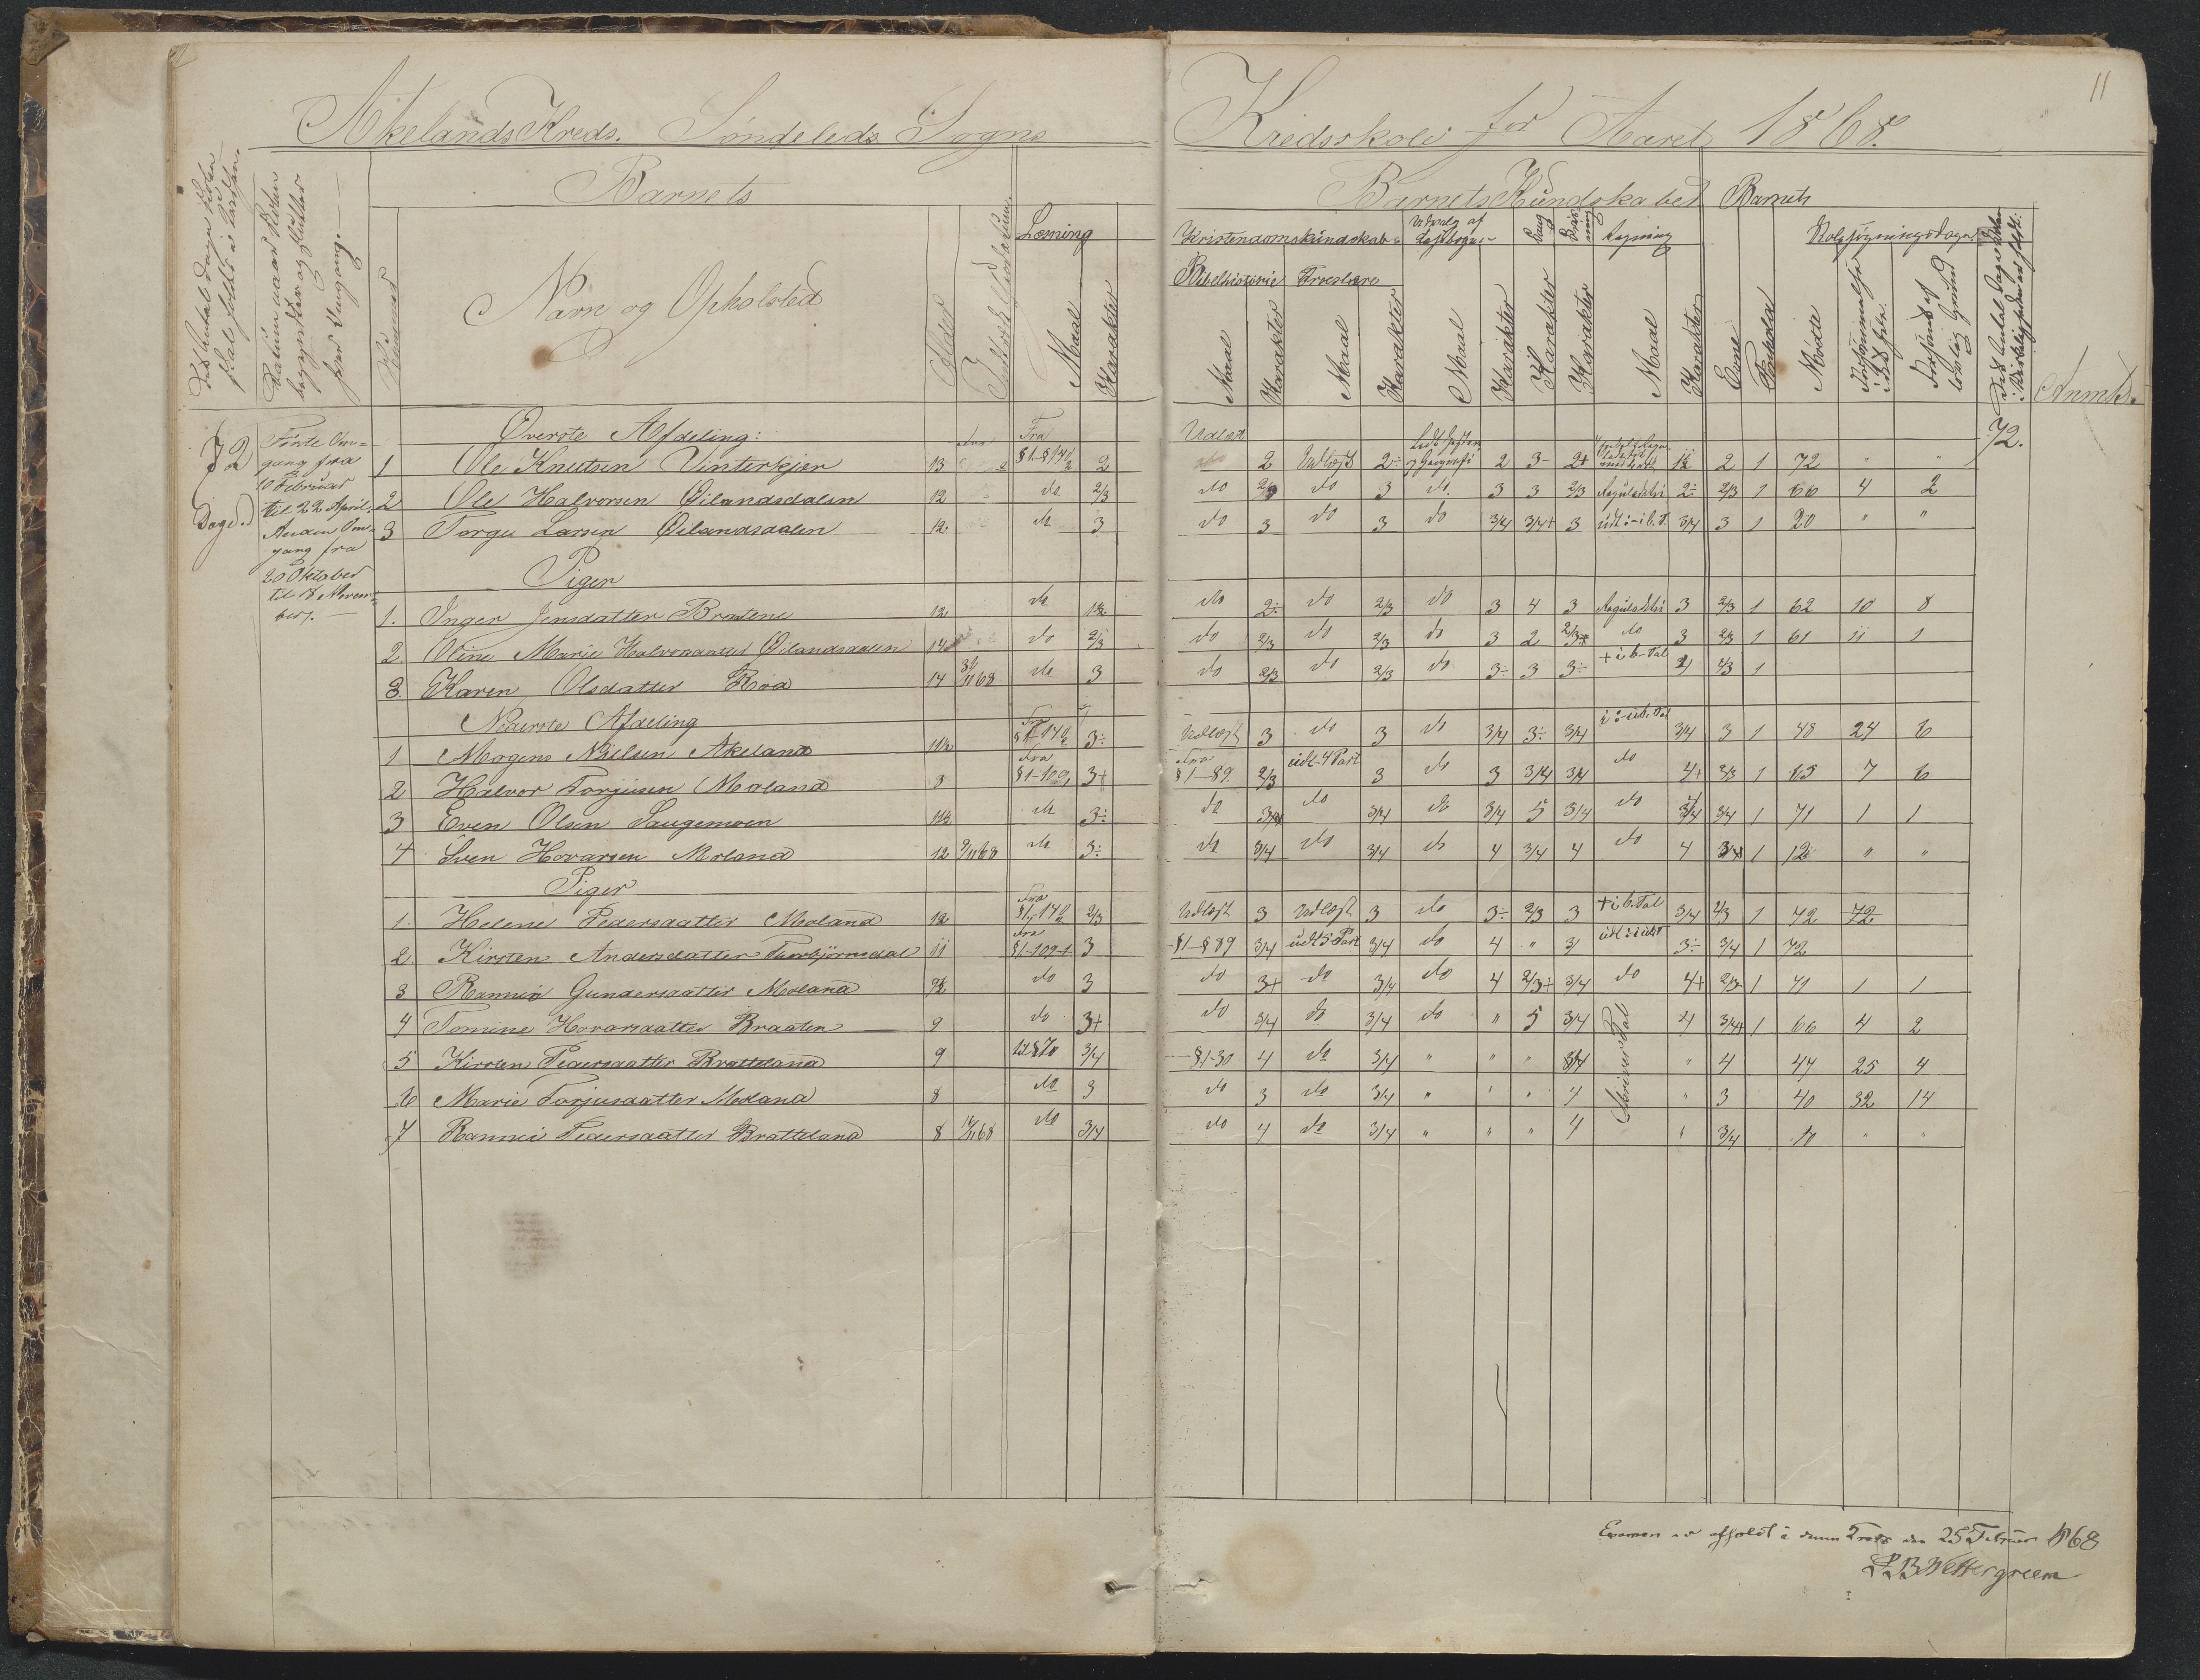 11
Akelands Kreds. Søndeleds Sogns
Kredsskole for Aaret 1868.
Barnets
Barnets Kundskaber
Barnets
Det Antal Dage Skolen skal holdes i Kredsen.
Datum naar Skolen begynder og slutter hver Omgang.
Nummer
Navn og Opholdsted
Alder
Læsning
Maal
Karakter
Kristendomskundskab
Udvalg af Læsebogen
Sang
Skriv ning
Regning
Skolesøgningsdage
Bibelhistorie Troeslære
Maal
Karakter
Maal
Karakter
Maal
Karakter
Karakter
Karakter
Maal
Karakter
Evne
Forhold
Mødte
Forsømmelse i det Hele
Forsømt af lovlig Grund
Anmk.
72 Dage
Første Om=
gang fra
10 Februar
til 22 April.
Anden Om=
gang fra
20 Oktober
til 18 Novem=
ber.
Øverste Afdeling: Fra Udlæst 72.
1 Ole Knutsen Vinterkjær 13 §1-§140 2 2 Udlæst 2÷ 2 3- 2+ 1½ 2 1 72 " "
2 Ole Halvorsen Øilandsdalen 12 do 2/3 do 2/3 do 3 do. 3 3 2/3 2÷ 2/3 1 66 4 2
3 Torger Larsen Øilandsdalen 12 do 3 do 3 do 3 do 3/4 3/4+ 3 3/4 3 1 20 " "
Piger
1. Inger Jensdatter Bratene 12 do do 2÷ do 2/3 do 3 4 3 3 2/3 1 62 10 8
2. Oline Marie Halvorsdatter Øilandsdalen 14 do 2/3 do 2/3 do 2/3 do 3 2 2/3+ do 3 2/3 1 61 11 1
3. Karen Olsdatter Røa 14 do 3 do 2/3 do 2/3 do 3÷ 3 3÷ + i b. Tal 1
Nederste Afdeling
1 Mogens Nielsen Akeland 11½ Fra §1-140 3÷ Udlæst 3 do 3 do 3/4 3÷ 3/4 3/4 3 1 48 24 6
2 Halvor Torjusen Moland 8 Fra §1-109 3+ Fra §1-89 2/3 udl-4 Part 3 do 3 3/4 3/4 do 4+ 2/3 1 65 7 6
3 Even Olsen Laugemoen 11½ do 3÷ do do 3/4 do 3/4 5 3/4 do 3/4 3/4 1 71 1 1
4 Sven Hovarsen Moland 12 9/11 68 do 3÷ do 3/4 do 3/4 do 4 3/4 4 do 4 3/4 1 12 " "
Piger
1. Helene Pedersdatter Moland 12 Fra §1-140 2/3 Udlæst 3 Udlæst 3 do 3÷ 2/3 3 + i b. Tal 3/4 2/3 1 72 72
2. Kirsten Andersdatter Thorbjørnsdal 11 Fra §1-109+ 3 §1-§89 3/4 udl 5 Part 3/4 do 4 " 3 3÷ 3/4 1 72
3 Rannei Gundersdatter Moland do 3 do 3+ do 3/4 do 4 2/3+ 3/4 do 4+ 2/3 1 71 1 1
4 Tomine Hovarsdatter Braaten 9 do 3+ do 3/4 do 3/4 do " 5 3/4 Skriver Tal 4 3/4+ 1 66 4 2
5 Kirsten Pedersdatter Bratteland 9 til §70 3/4 §1-30 4 do 3/4 " " " 3/4 " 4 44 25 4
6 Marie Torjusdatter Moland 8 do 3 do 3 do 3/4 " " " 4 " 3 40 32 14
7 Rannei Pedersdatter Bratteland 8 do 3/4 do 4 do 3/4 " " " 4 " 3/4 10 " "
Examen er afholdt i denne Kreds den 25 Februar 1868
P B Wettergreen